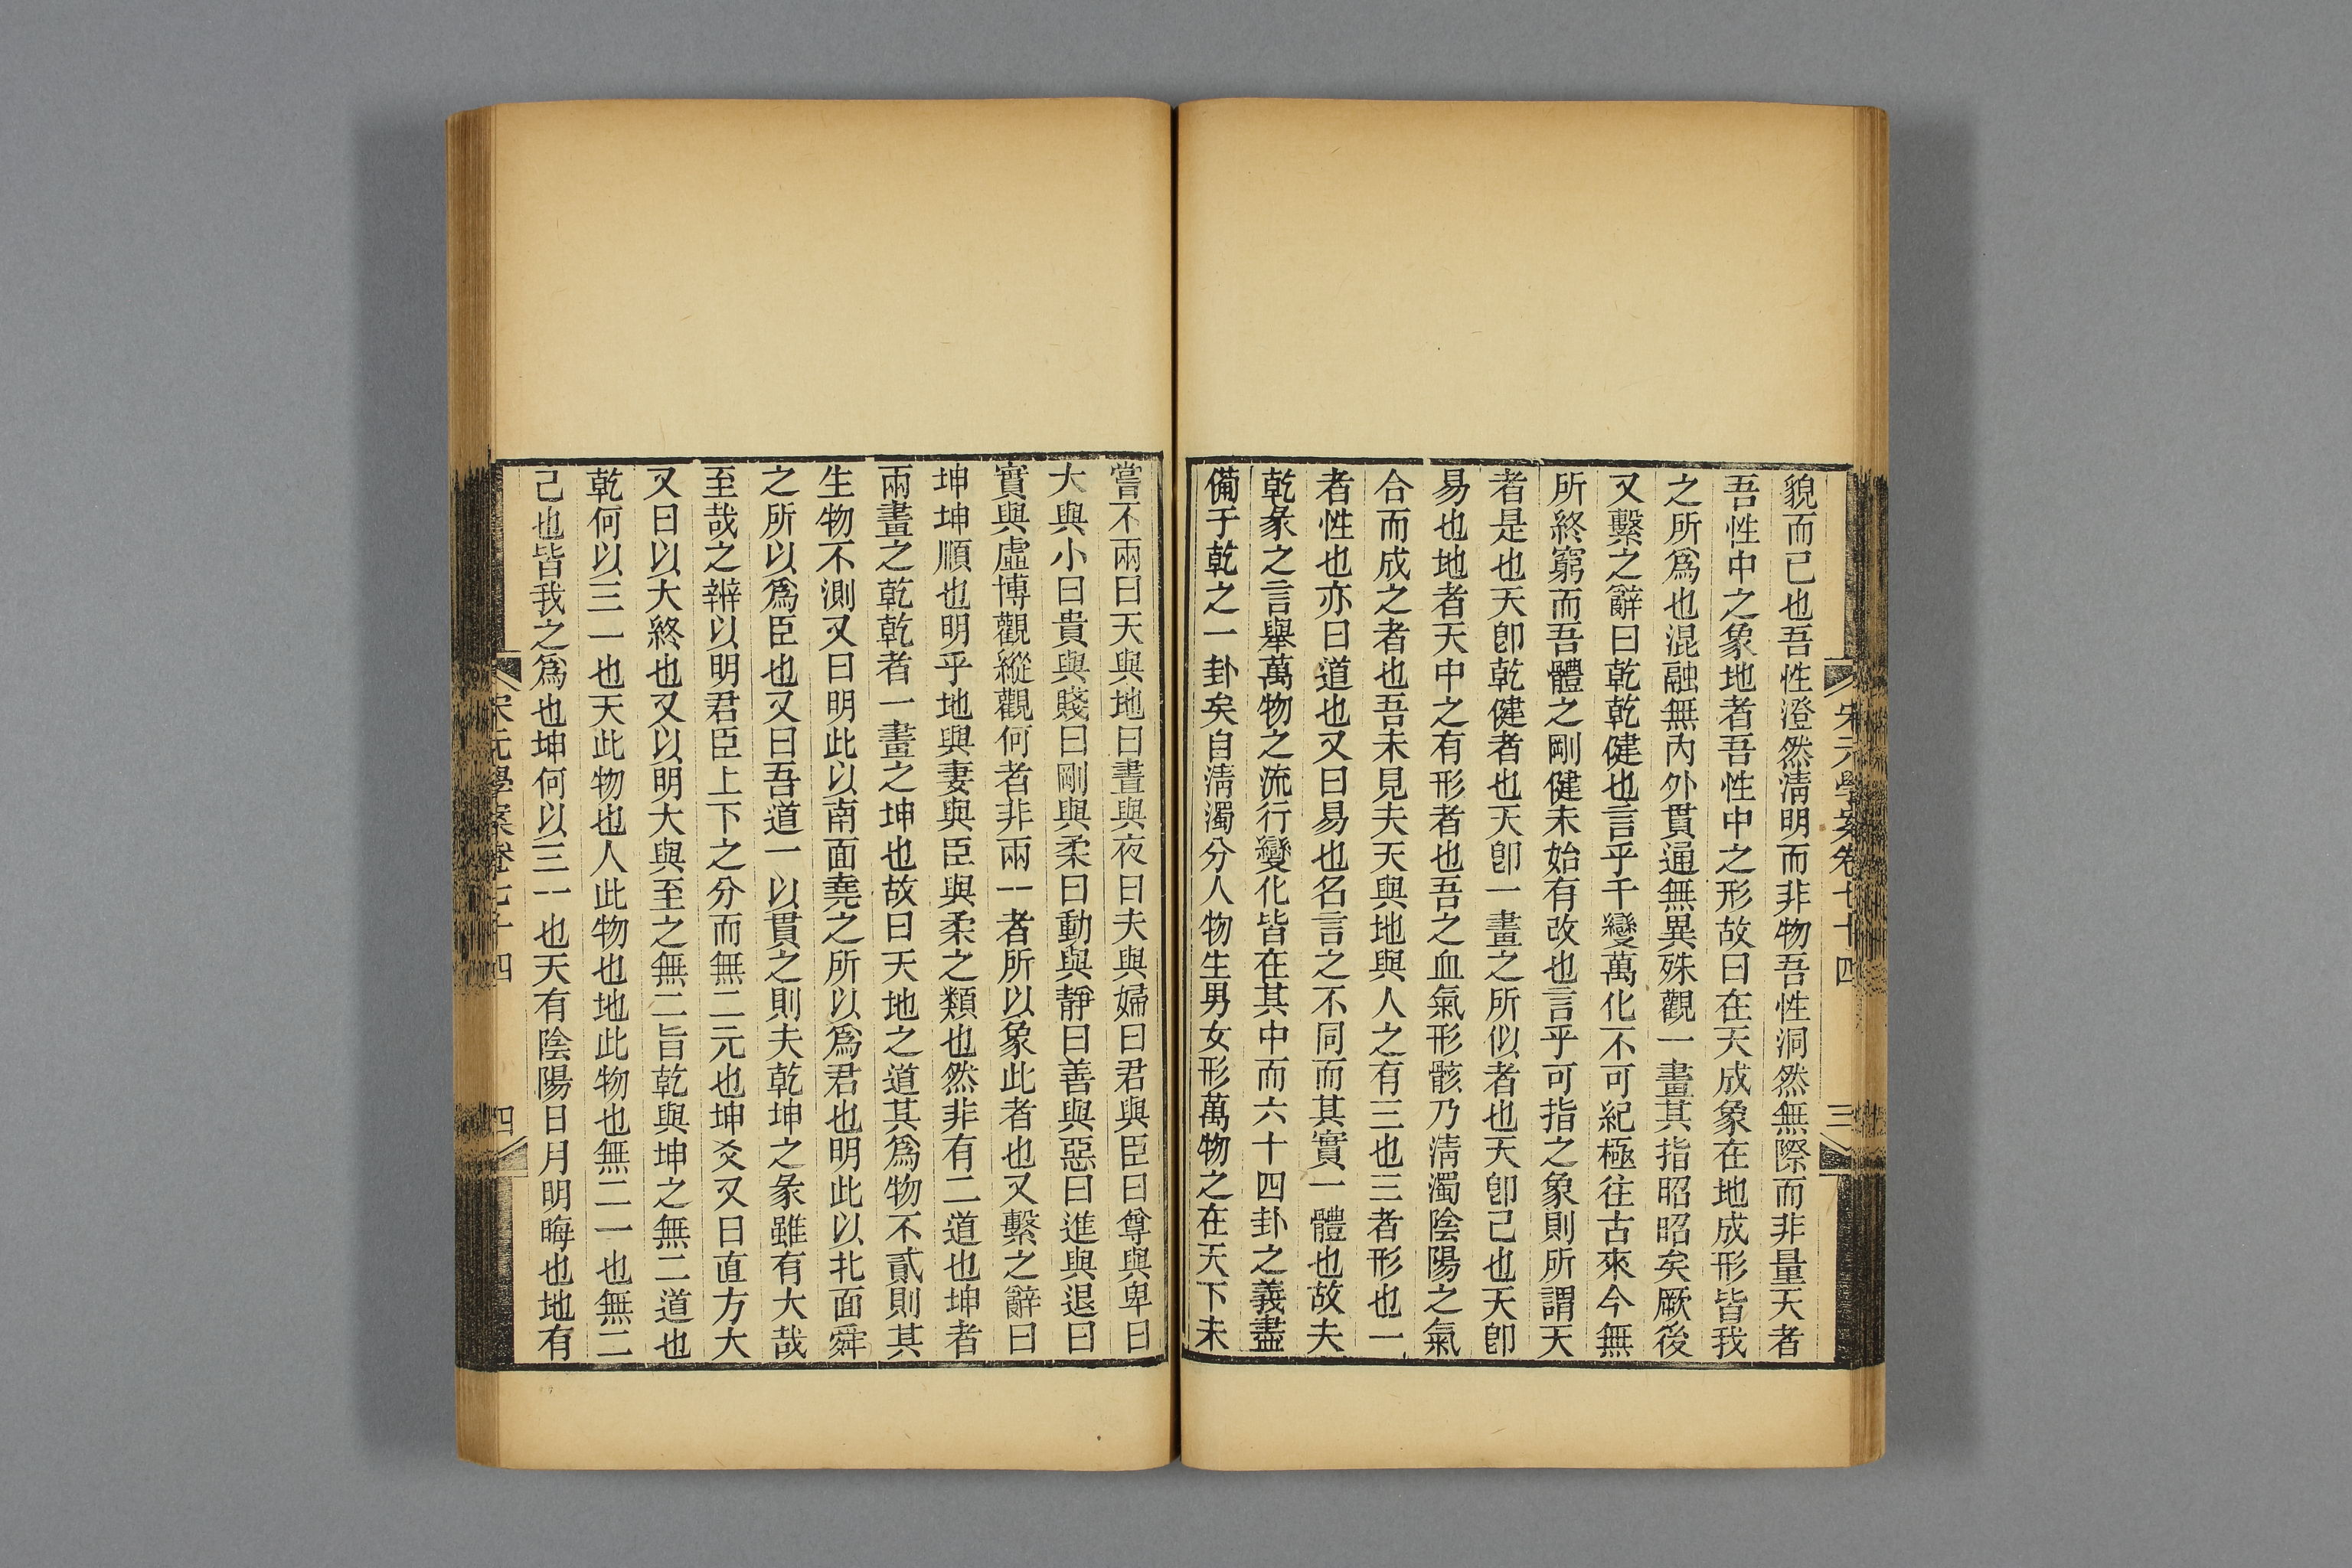 宋元學案卷七十四
三
貌而已也吾性澄然淸明而非物吾性洞然無際而非量天者
吾性中之象地者吾性中之形故曰在天成象在地成形皆我
之所爲也混融無內外貫通無異殊觀一畫其指昭昭矣厥後
又繫之辭曰乾乾健也言乎千變萬化不可紀極往古來今無
所終窮而吾體之剛健未始有改也言乎可指之象則所謂天
者是也天卽乾健者也天卽一畫之所似者也天卽己也天卽
易也地者天中之有形者也吾之血氣形骸乃淸濁陰陽之氣
合而成之者也吾未見夫天與地與人之有三也三者形也一
者性也亦曰道也又曰易也名言之不同而其實一體也故夫
乾彖之言舉萬物之流行變化皆在其中而六十四卦之義盡
備于乾之一卦矣自淸濁分人物生男女形萬物之在天下未
嘗不兩曰天與地曰晝與夜曰夫與婦曰君與臣曰尊與卑曰
大與小曰貴與賤曰剛與柔曰動與靜曰善與惡曰進與退曰
實與虛博觀縱觀何者非兩一者所以象此者也又繫之辭曰
坤坤順也明乎地與妻與臣與柔之類也然非有二道也坤者
兩畫之乾乾者一畫之坤也故曰天地之道其爲物不貳則其
生物不測又曰明此以南面堯之所以爲君也明此以北面舜
之所以爲臣也又曰吾道一以貫之則夫乾坤之彖雖有大哉
至哉之辨以明君臣上下之分而無二元也坤爻又曰直方大
又曰以大終也又以明大與至之無二旨乾與坤之無二道也
乾何以三一也天此物也人此物也地此物也無二一也無二
己也皆我之爲也坤何以三一也天有陰陽日月明晦也地有
宋元學案卷七十四
四